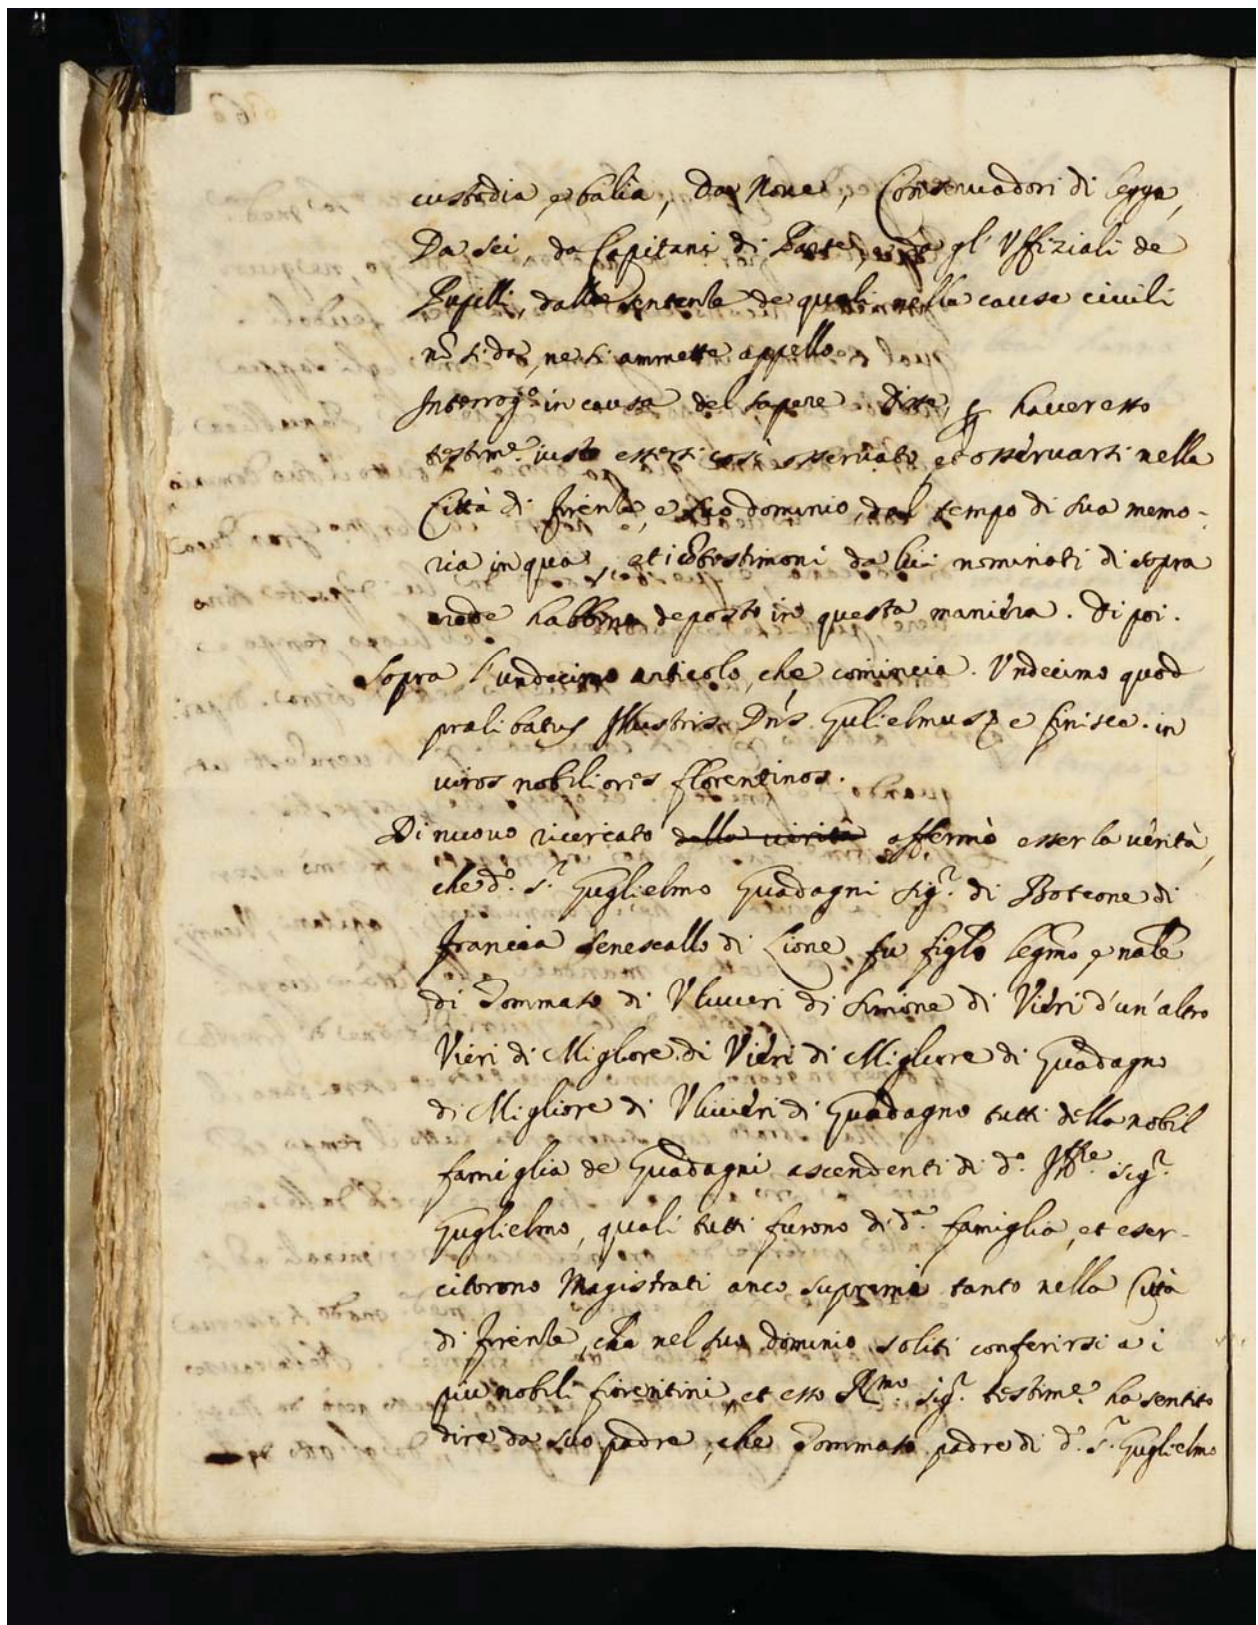 custodia, e balia, Da Nove, Conservadori di legge,
Da sei, da Capitani di Parte, e da gl' Uffiziali de
Pupilli, dalle sentenze de quali nelle cause civili
nō si da, ne si ammette appello.
Interrog.º in causa del sapere Disse, haver esso
testim.e visto essersi così osservato, et osservarsi nella
Città di Firenze, e suo dominio, dal tempo di sua memo-
ria in qua, et i testimoni da lui nominati di sopra
crede habbino deposto in questa maniera. Di poi.
Sopra l'undecimo articolo, che comincia. Undecimo quod
prælibatus Illustris. Dn̄s. Gulielmus e finisce. in
viros nobiliores florentinos.
Di nuovo ricercato della verità affermò esser la verità,
che d.º S.r Guglielmo Guadagni Sig.r di Boteone di
Francia Senescallo di Lione fu figlo legmo, e nale
di Tommaso di Ulivieri di Simone di Vieri d'un'altro
Vieri di Migliore di Vieri di Migliore di Guadagno
di Migliore di Ulivieri di Guadagno tutti della nobil
famiglia de Guadagni ascendenti di d.º Ill.re Sig.r
Guglielmo, quali tutti furono di d.a famiglia, et eser-
citorono Magistrati anco supremi tanto nella Città
di Firenze, che nel suo dominio soliti conferirsi a i
piu nobili fiorentini, et esso R.mo Sig.r testim.e ha sentito
dire da suo padre, che Tommaso padre di d.º S.r Guglielmo